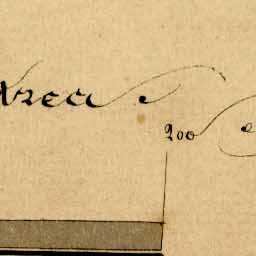 Area
200